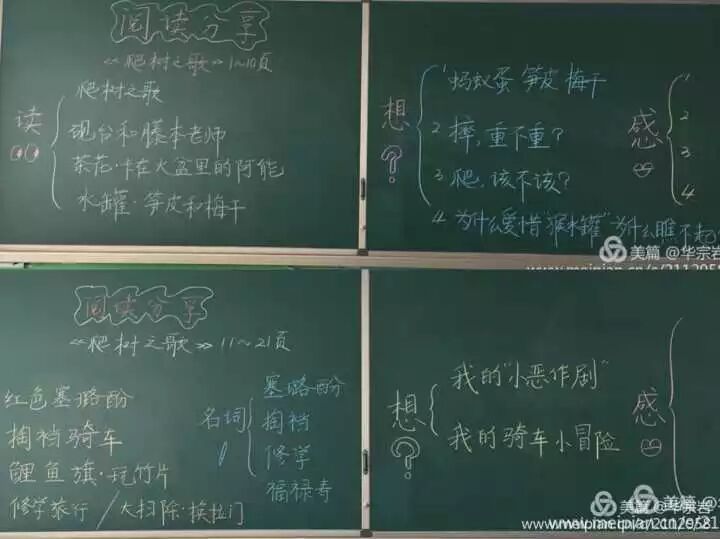 阅读分享
《爬树之歌》1~10页
读
爬树之歌
砚台和藤本老师
茶花·卡在火盆里的阿能
水罐·笋皮和梅干
想?
1 蚂蚁蛋 笋皮 梅干
2 摔,重不重?
3 爬,该不该?
4 为什么爱惜"猴水罐"为什么瞧不起
感
1
2
3
4
美篇 @华宗岩
阅读分享
《爬树之歌》11~21页
红色塞璐酚
掏裆骑车
鲤鱼旗·玩竹片
修学旅行/大扫除·换拉门
名词
塞璐酚
掏裆
修学
福禄寿
想?
我的"小恶作剧"
我的骑车小冒险
感
美篇 @华宗岩